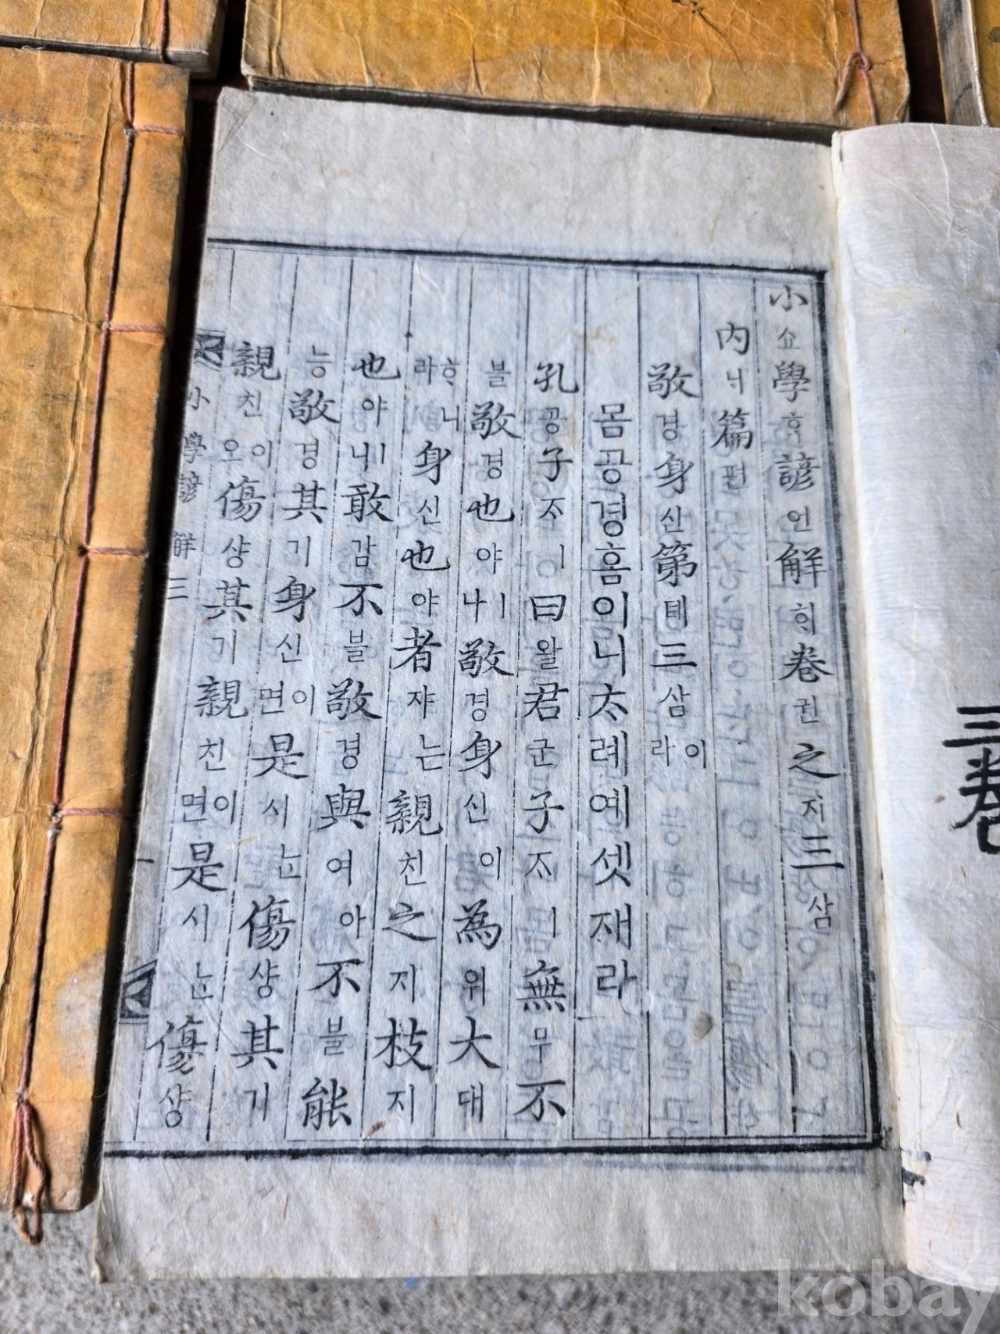 小쇼學ᄒᆞᆨ諺언解ᄒᆡ卷권之지三삼
內ᄂᆡ篇편
敬경身신第톄三삼이라
몸공경홈이니ᄎᆞ례예셋재라
孔공子ᄌᆞㅣ曰왈君군子ᄌᆞㅣ無무不
블敬경也야ㅣ나敬경身신이為위大대
ᄒᆞ니라身신也야者쟈는親친之지枝지
也야ㅣ니敢감不블敬경與여아不블能
능敬경其기身신이면是시ᄂᆞᆫ傷샹其기
親친이오傷샹其기親친이면是시ᄂᆞᆫ傷샹
小學諺解 三
三卷
kobay